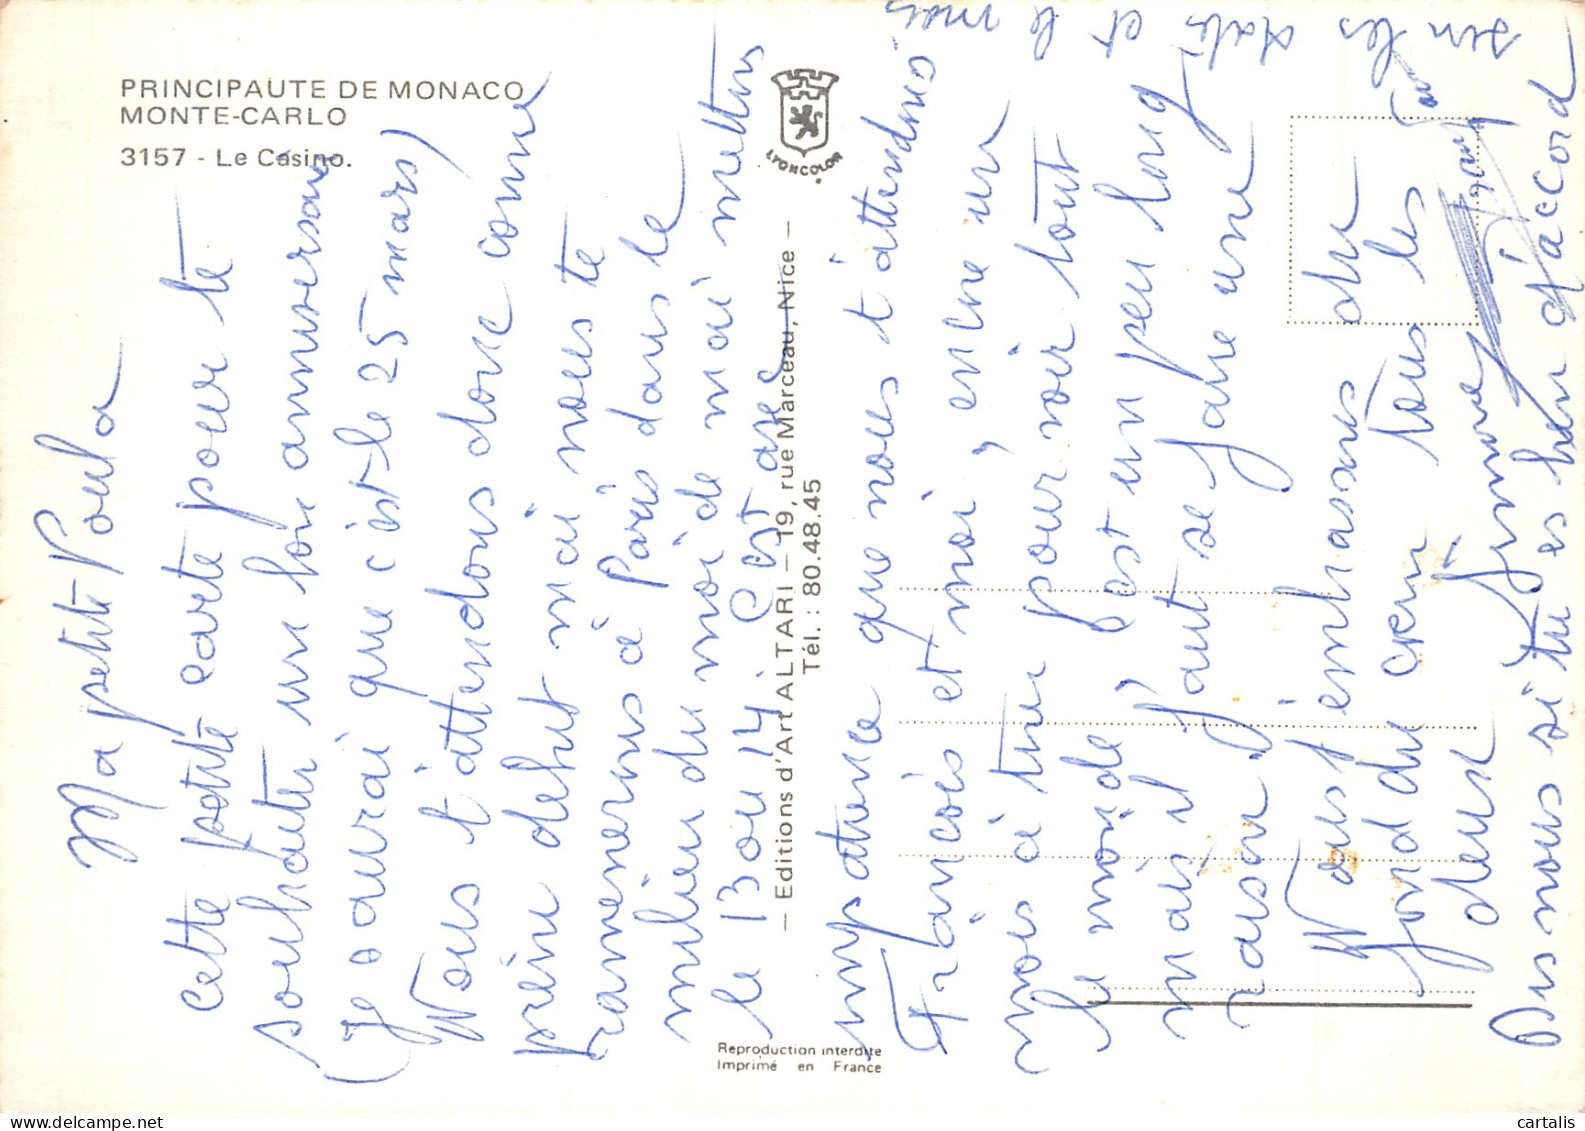 PRINCIPAUTE DE MONACO
MONTE-CARLO
3157 - Le Casino.
LYONCOLOR
— Editions d'Art ALTARI — 19, rue Marceau, Nice —
Tél. : 80.48.45
Reproduction interdite
Imprimé en France
Ma petite Poula
cette petite carte pour te
souhaiter un bon anniversaire
(je saurai que c'est le 25 mars)
Nous t'attendons donc comme
prévu début mai nous te
ramenerons à Paris dans le
milieu du moi de mai mettons
le 13 ou 14. C'est avec
impatience que nous t'attendrons
François et moi, encore un
mois à tirer pour voir tout
le monde, c'est un peu long
mais il faut se faire une
raison.
Nous t'embrassons du
fond du coeur tous les
deux
Dis nous si tu es bien d'accord
sur les dates et le mois
cartalis